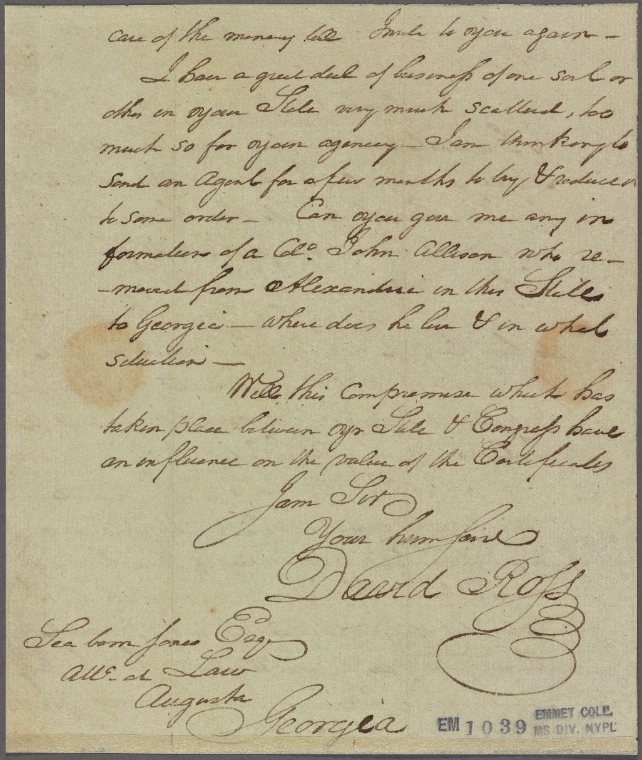 care of the money till I write to you again –
I have a great deal of business of one sort or
other in your State very much scattered, too
much so for your agency – I am thinking to
send an Agent for a few months to try & reduce it
to some order – Can you give me any in
formation of a Colo. John Allison who re–
–moved from Alexandria in this State
to Georgia – where does he live & in what
situation –
Will this compromise which has
taken place between yr State & Congress have
an influence on the value of the Certificates
I am Sir
Your hum Serv
David Ross
Seaborn Jones Esqr
Atty. at Law
Augusta
Georgia
EM 1039
EMMET COLL.
MS DIV. NYPL